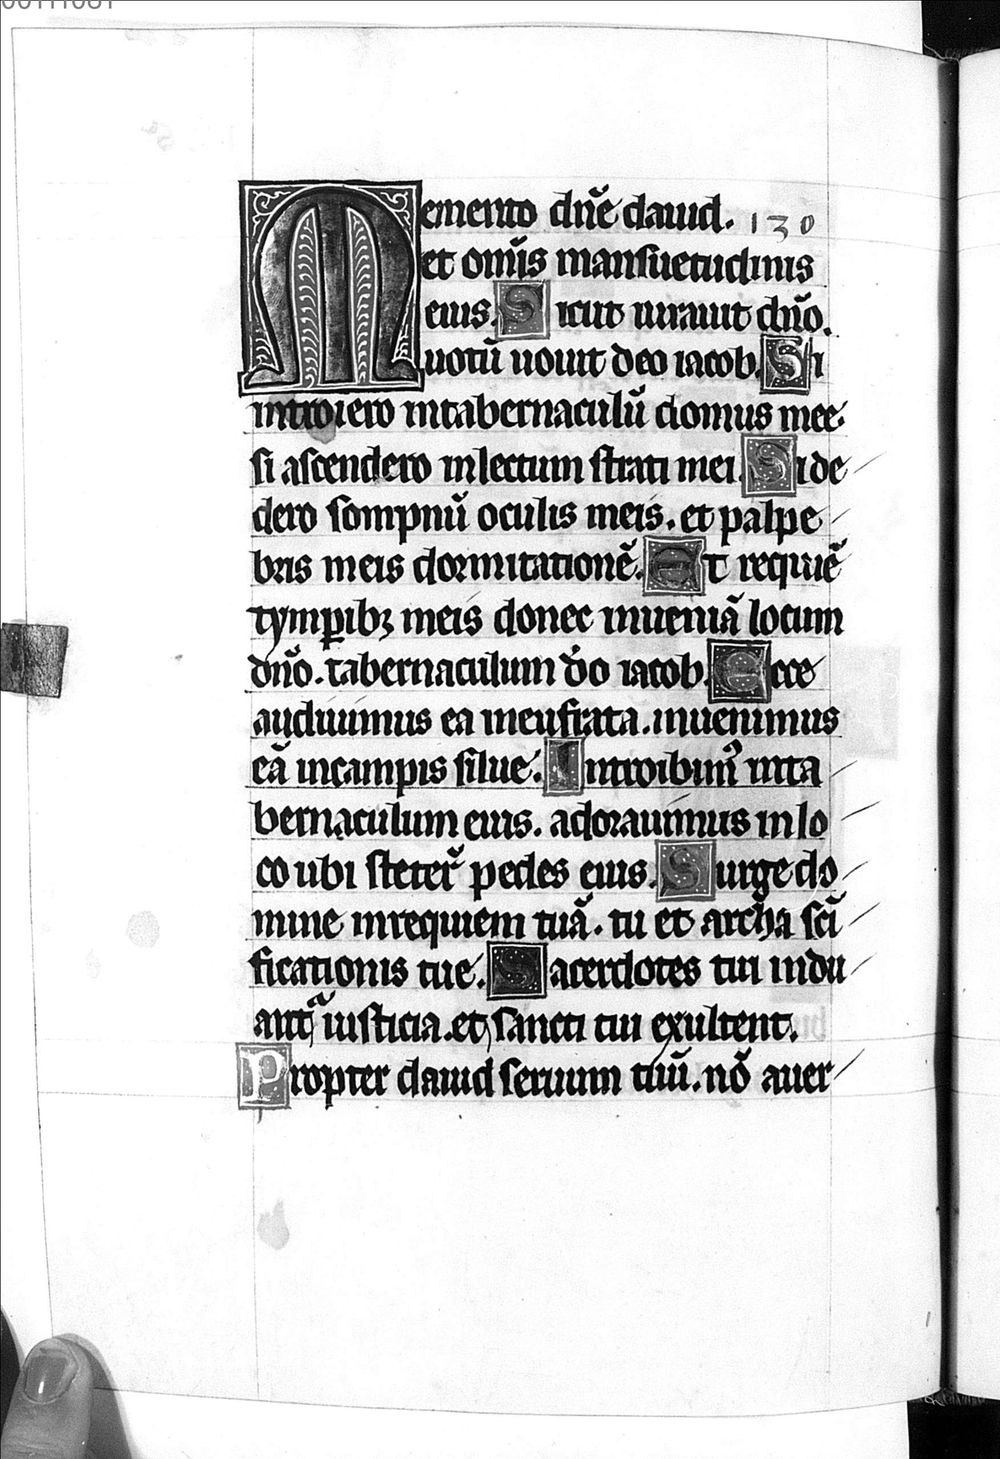 00111081
Memento dñe dauid. 130
et omĩs mansuetudinis
eius. Sicut iurauit dño.
uotũ uouit deo iacob. Si
introiero intabernaculũ domus mee.
si ascendero inlectum strati mei. Si de
dero sompnũ oculis meis. et palpe
bris meis dormitationẽ. Et requiẽ
tympibꝫ meis donec inueniã locum
dño. tabernaculum do iacob. Ecce
audiuimus ea ineufrata. inuenimus
eã incampis silue. Introibimꝰ inta
bernaculum eius. adorauimus inlo
co ubi steter̃ pedes eius. Surge do
mine inrequiem tuã. tu et archa sci̅
ficationis tue. Sacerdotes tui indu
antᷓ iusticia. et sancti tui exultent.
Propter dauid seruum tuũ. nõ auer